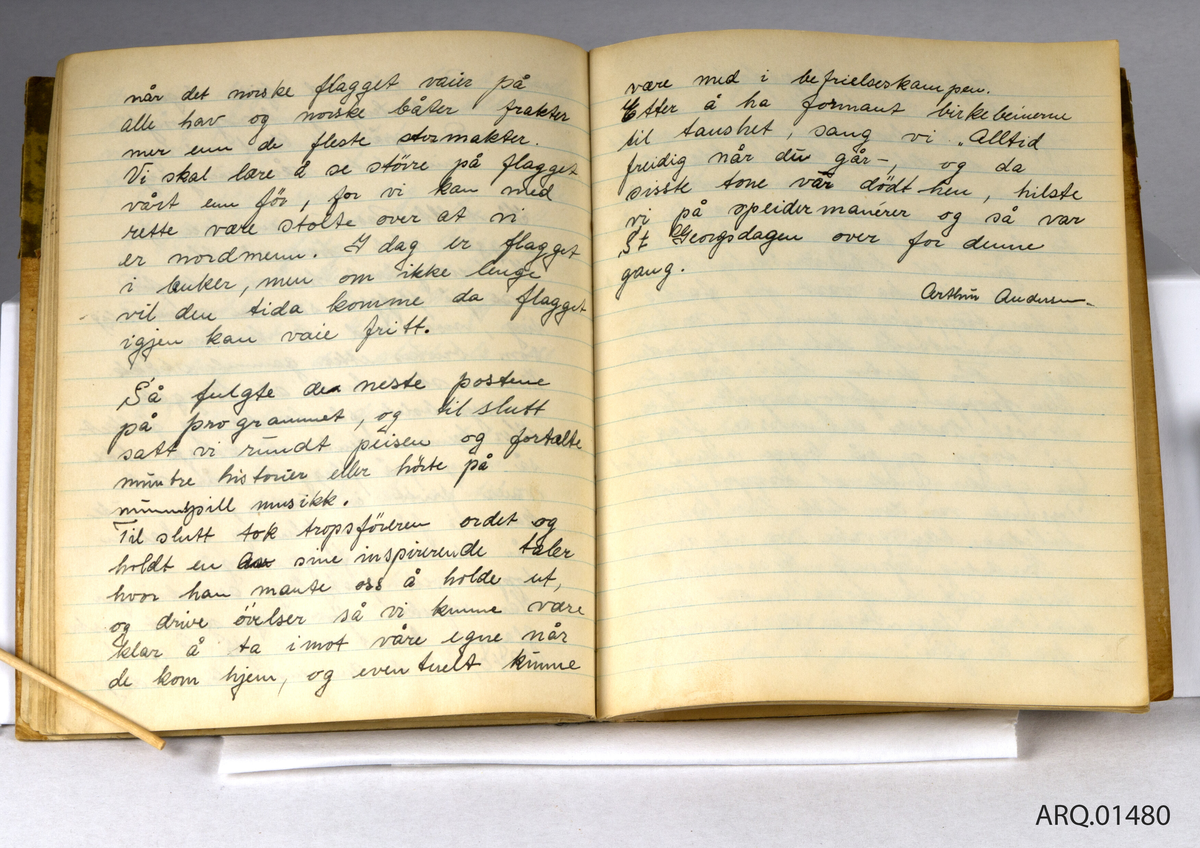 når det norske flagget vaier på
alle hav og norske båter frakter
mer enn de fleste stormakter.
Vi skal lære å se större på flagget
vårt enn för, for vi kan med
rette være stolte over at vi
er nordmenn. I dag er flagget
i lenker, men om ikke lenge
vil den tida komme da flagget
igjen kan vaie fritt.
Så fulgte de neste postene
på programmet, og til slutt
satt vi rundt peisen og fortalte
muntre historier eller hörte på
munnspill musikk.
Til slutt tok tropsföreren ordet og
holdt en av sine inspirerende taler
hvor han mante oss å holde ut,
og drive övelser så vi kunne være
klar å ta imot våre egne når
de kom hjem, og eventuelt kunne
være med i befrielseskampen.
Etter å ha formant birkebeinerne
til taushet, sang vi „Alltid
freidig når du går–, og da
sisste tone var dödt hen, hilste
vi på speidermanérer og så var
St Georgsdagen over for denne
gang.
Arthur Andersen
ARQ.01480